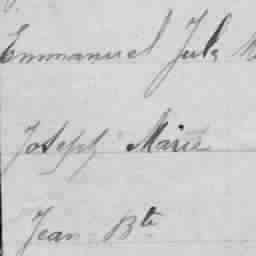 Emmanuel Jule
Joseph Marie
Jean Bte